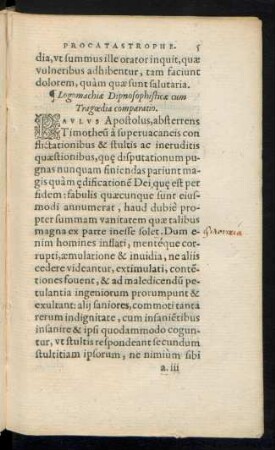 PROCATASTROPHE. 5
dia, vt summus ille orator inquit, quæ
vulneribus adhibentur, tam faciunt
dolorem, quàm quæ sunt salutaria.
¶ Logomachiæ Dipnosophisticæ cum
Tragœdia comparatio.
PAVLVS Apostolus, absterrens
Timotheũ à superuacaneis con
flictationibus & stultis ac ineruditis
quæstionibus, quę disputationum pu
gnas nunquam finiendas pariunt ma
gis quàm ędificationẽ Dei, quę est per
fidem: fabulis quæcunque sunt eius-
modi annumerat, haud dubiè pro-
pter summam vanitatem quæ talibus
magna ex parte inesse solet. Dum e-
nim homines inflati, mentéque cor-
rupti, æmulatione & inuidia, ne aliis
cedere videantur, extimulati, contẽ-
tiones fouent, & ad maledicendũ pe-
tulantia ingeniorum prorumpunt &
exultant: alij saniores, commoti tanta
rerum indignitate, cum insaniẽtibus
insanire & ipsi quodammodo cogun-
tur, vt stultis respondeant secundum
stultitiam ipsorum, ne nimiùm sibi
a. iii